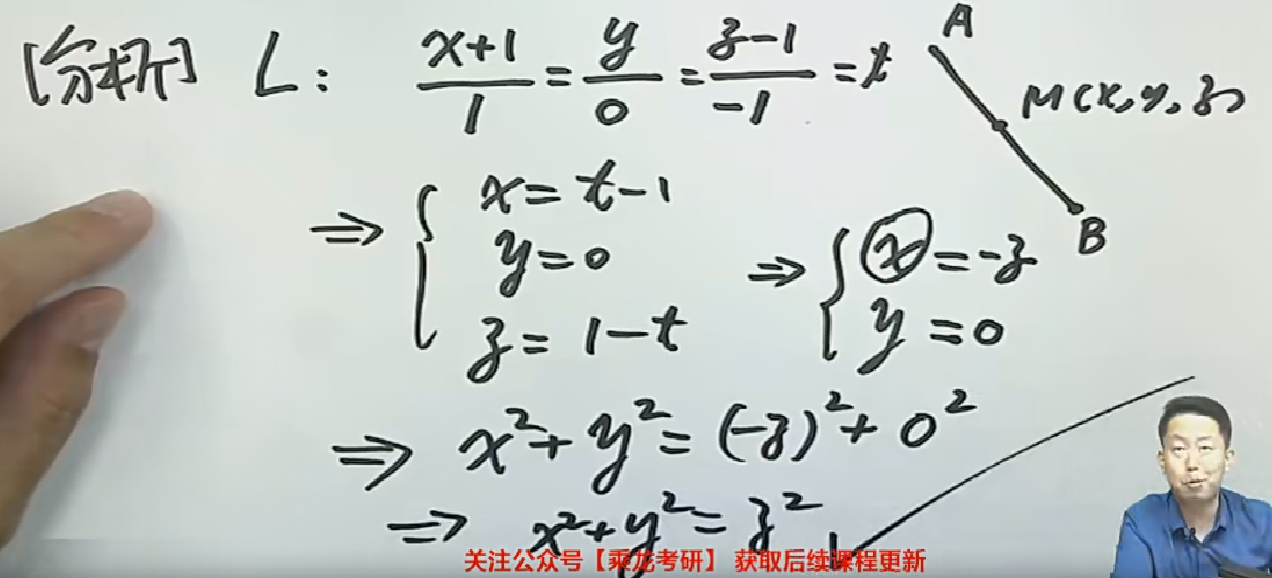 [分析] L: (x+1)/1 = y/0 = (z-1)/(-1) = t
A
M(x, y, z)
B
⇒ { x = t-1
y = 0
z = 1-t
⇒ { x = -z
y = 0
⇒ x²+y² = (-z)²+0²
⇒ x²+y² = z²
关注公众号【乘龙考研】 获取后续课程更新